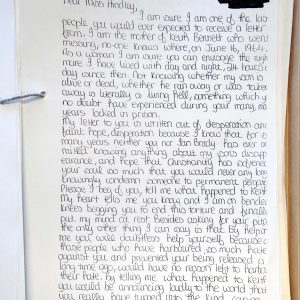 Dear Miss Hindley,
I am sure I am one of the last
people you would ever expected to receive a letter
from. I am the mother of Keith Bennett who went
missing, no one knows where, on June 16, 1964.
As a woman I am sure you can envisage the night-
mare I have lived with day and night, 24 hours a
day since then. Not knowing whether my son is
alive or dead, whether he ran away or was taken
away is literally a living hell, something which you
no doubt have experienced during your many, many
years locked in prison.
My letter to you is written out of desperation and
faint hope, desperation because I know that for so
many years neither you nor Ian Brady has ever ad-
mitted knowing anything about my son's disapp-
earance, and hope that Christianity has softened
your soul so much that you would never any longer
knowingly condemn someone to permanent purgatory.
Please I beg of you, tell me what happened to Keith.
My heart tells me you know and I am on bended
knees begging you to end this torture and finally
put my mind at rest. Besides asking for your pity
the only other thing I can say is that by helping
me you will doubtless help yourself because all
those people who have harboured so much hate
against you and prevented your being released a
long time ago, would have no reason left to harbour
their hate. By telling me what happened to Keith
you would be announcing loudly to the world that
you really have turned into the